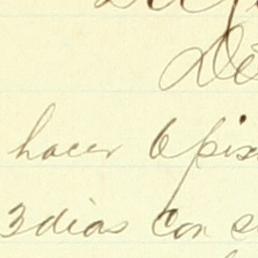 De
hacer 6 pis
3 dias con e